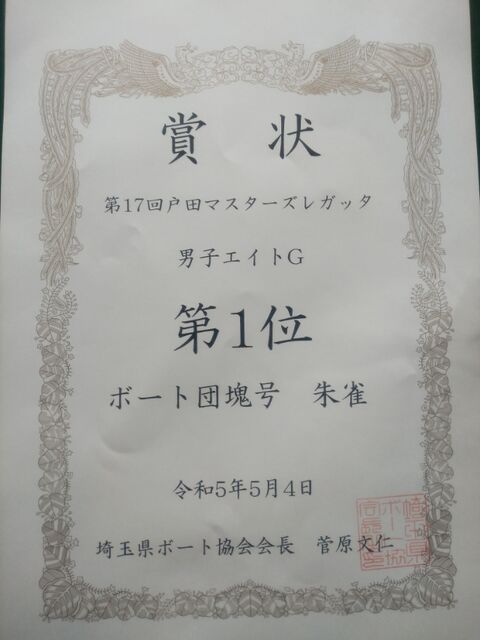 賞 状
第17回戸田マスターズレガッタ
男子エイトG
第1位
ボート団塊号 朱雀
令和5年5月4日
埼玉県ボート協会会長 菅原文仁